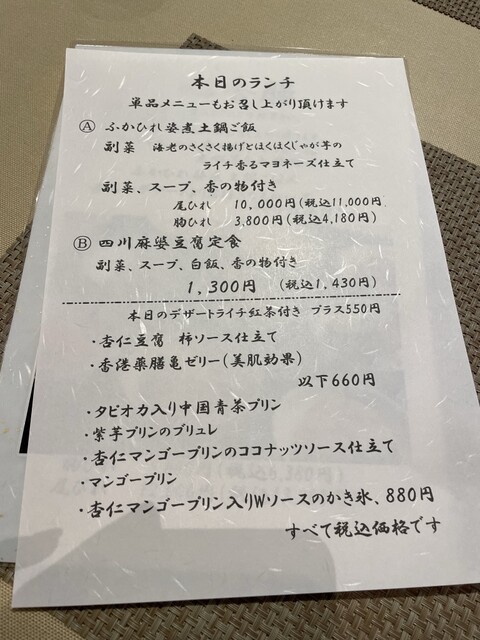 本日のランチ
単品メニューもお召し上がり頂けます
Ⓐ ふかひれ姿煮土鍋ご飯
副菜 海老のさくさく揚げとほくほくじゃが芋の
ライチ香るマヨネーズ仕立て
副菜、スープ、香の物付き
尾ひれ 10,000円(税込11,000円)
胸ひれ 3,800円(税込4,180円)
Ⓑ 四川麻婆豆腐定食
副菜、スープ、白飯、香の物付き
1,300円 (税込1,430円)
本日のデザートライチ紅茶付き プラス550円
・杏仁豆腐 柿ソース仕立て
・香港薬膳亀ゼリー(美肌効果)
以下660円
・タピオカ入り中国青茶プリン
・紫芋プリンのブリュレ
・杏仁マンゴープリンのココナッツソース仕立て
・マンゴープリン
・杏仁マンゴープリン入りWソースのかき氷、880円
すべて税込価格です